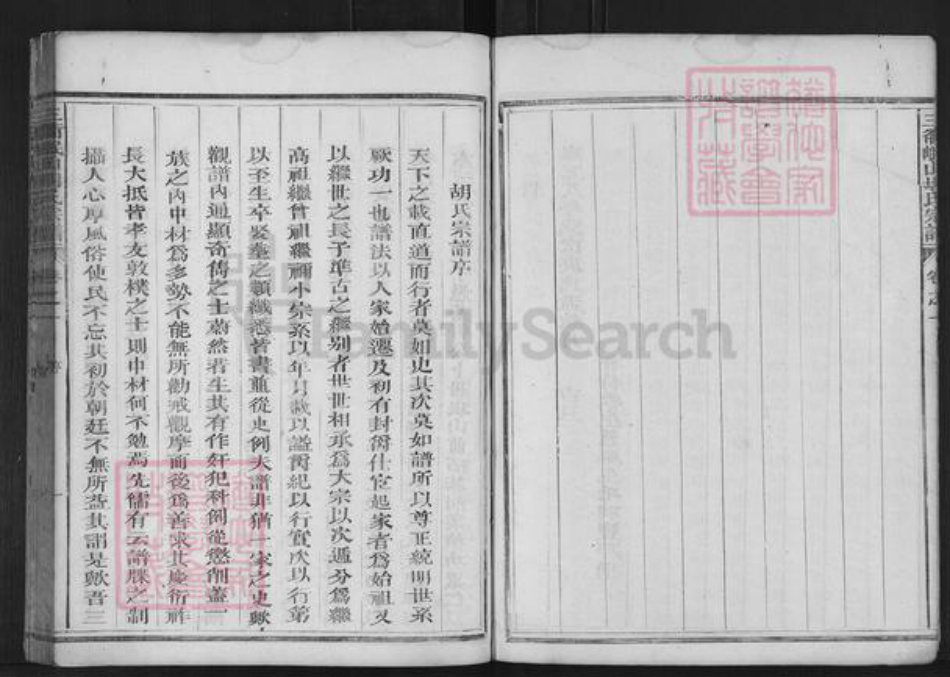 三衢峴山胡氏宗譜 卷之一
胡氏宗譜序
天下之載直道而行者莫如史其次莫如譜所以尊正統明世系
厥功一也譜法以人家始遷及初有封爵仕宦起家者爲始祖又
以繼世之長子準古之繼别者世世相承爲大宗以次遞分爲繼
高祖繼曾祖繼禰小宗系以年月載以諡爵紀以行實次以行第
以至生卒娶塟之類纖悉皆書並從史例夫譜非猶一家之史歟
觀譜內通顯奇儁之士蔚然者生其有作奸犯科例從懲削蓋一
族之內中材爲多勢不能無所勸戒觀摩而後爲善求其慶衍祥
長大抵皆孝友敦樸之士則中材何不勉焉先儒有云譜牒之制
攝人心厚風俗使民不忘其初於朝廷不無所益其謂是歟吾三
FamilySearch